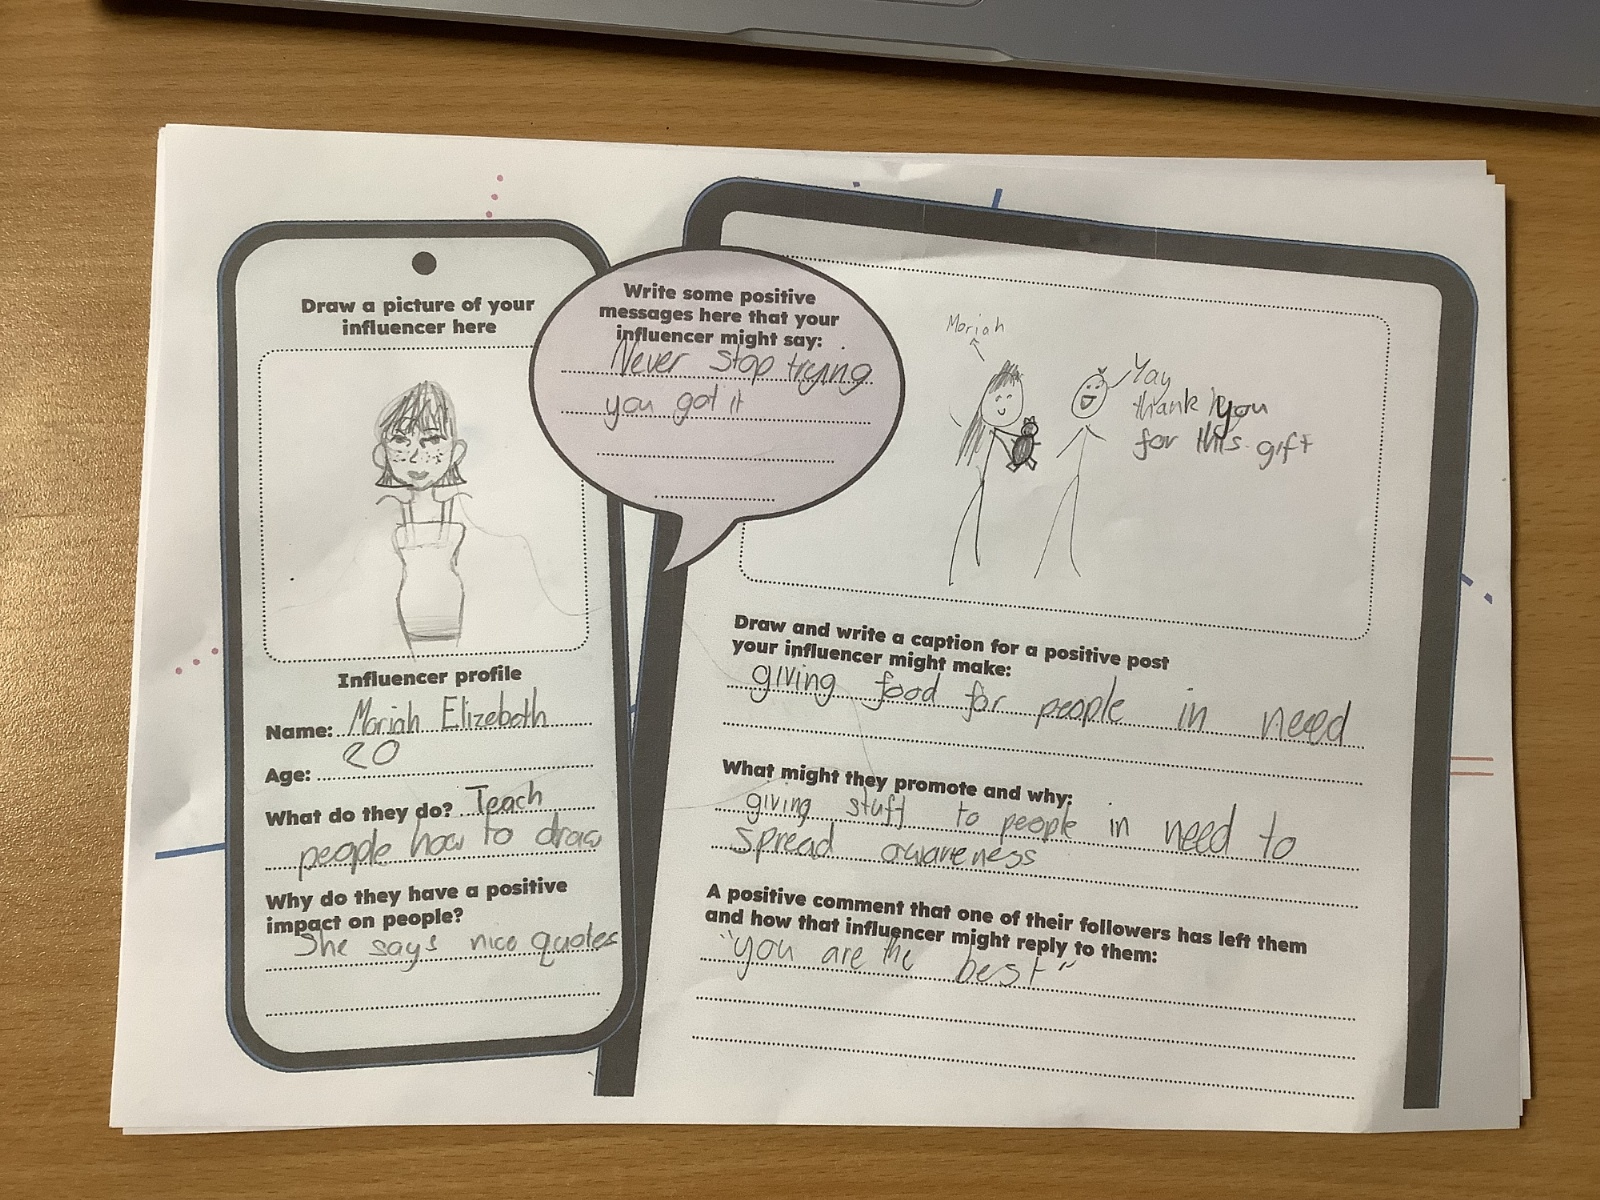 Draw a picture of your
influencer here
Influencer profile
Name: Moriah Elizeboth
Age: 20
What do they do? Teach
people how to draw
Why do they have a positive
impact on people?
She says nice quotes
Write some positive
messages here that your
influencer might say:
Never stop trying
you got it
Moriah
Yay
thank you
for this gift
Draw and write a caption for a positive post
your influencer might make:
giving food for people in need
What might they promote and why:
giving stuff to people in need to
spread awareness
A positive comment that one of their followers has left them
and how that influencer might reply to them:
"you are the best"